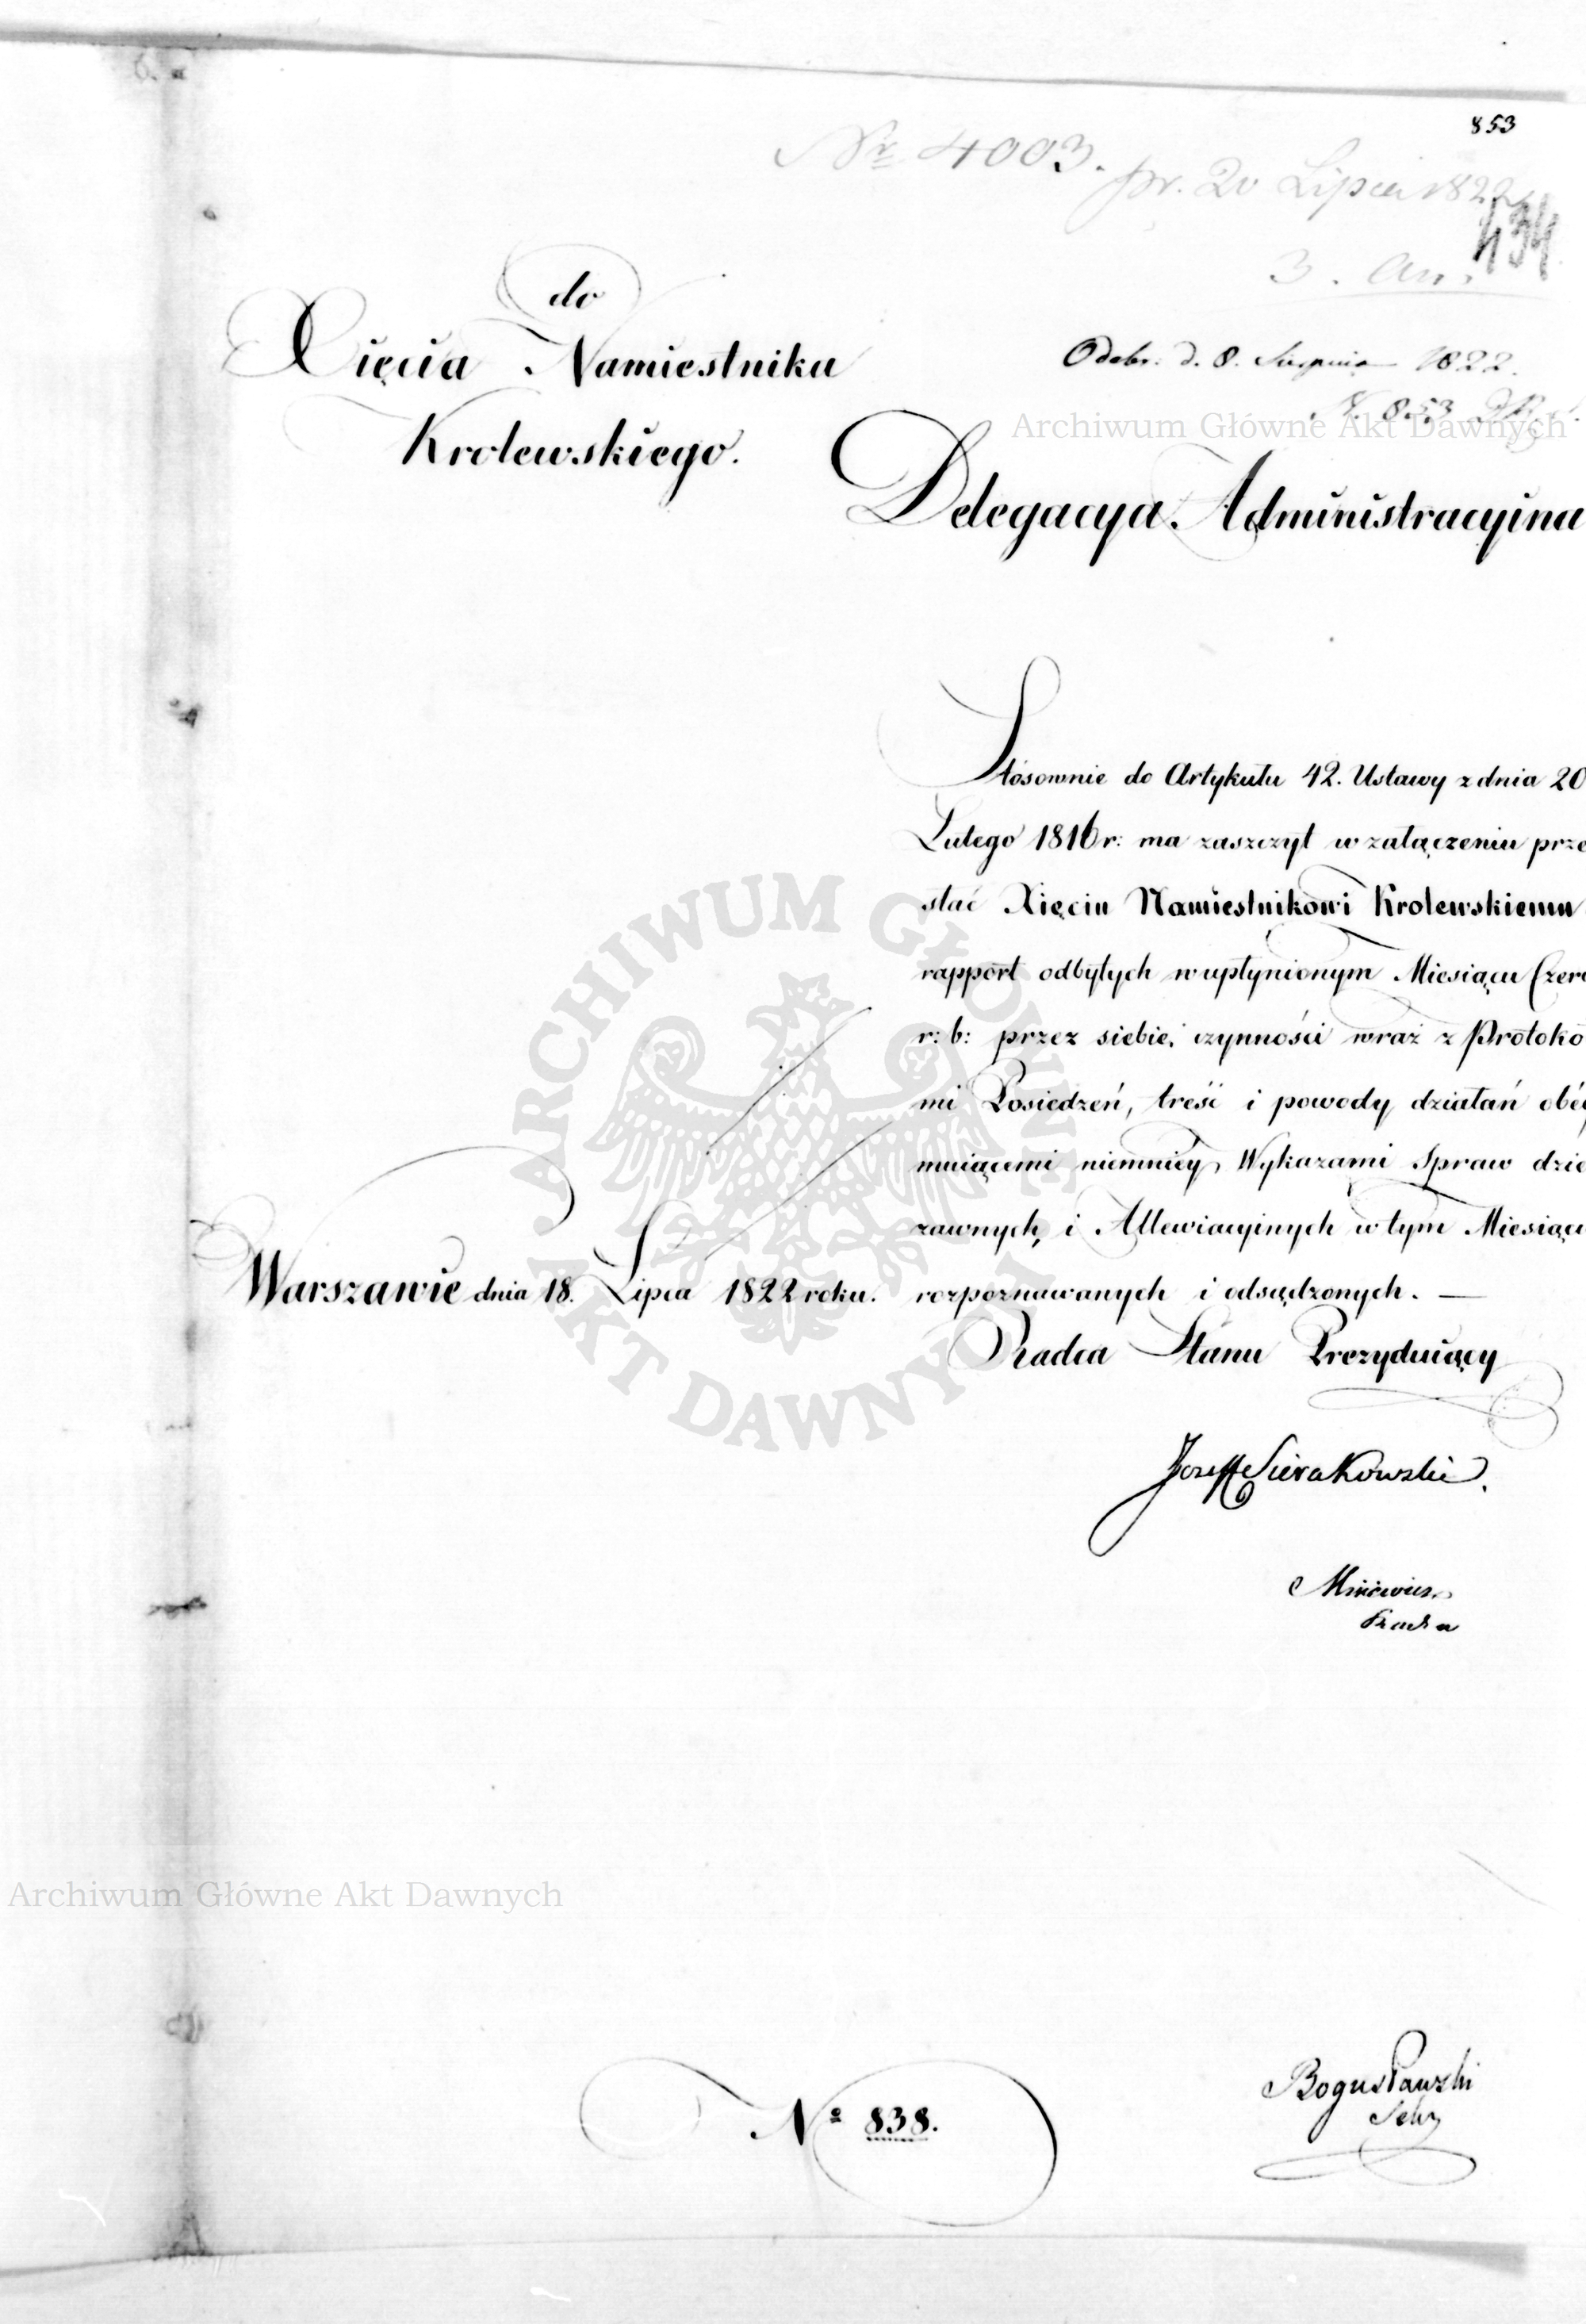 853
Nr 4003. pr. 20 Lipca 1822
434
3. An.
do
Xięcia Namiestnika
Krolewskiego.
Odebr. d. 8. Sierpnia 1822.
853
Archiwum Główne Akt Dawnych
Delegacya Administracyina
Stósownie do Artykułu 42. Ustawy z dnia 20
Lutego 1816 r: ma zaszczyt w załączeniu prze
słać Xięciu Namiestnikowi Krolewskiemu
rapport odbytych w upłynionym Miesiącu Czerw
r: b: przez siebie czynności wraz z Protoko
mi Posiedzeń, treść i powody działań obéy
muiącemi niemniéy Wykazami Spraw dzie
rzawnych, i Allewiacyinych w tym Miesiącu
Warszawie dnia 18. Lipca 1822 roku. rozpoznawanych i odsądzonych. —
Radca Stanu Prezyduiący
Jozeff Sierakowski.
Radca
ARCHIWUM GŁÓWNE AKT DAWNYCH
Archiwum Główne Akt Dawnych
Bogusławski
Sekr
No 838.